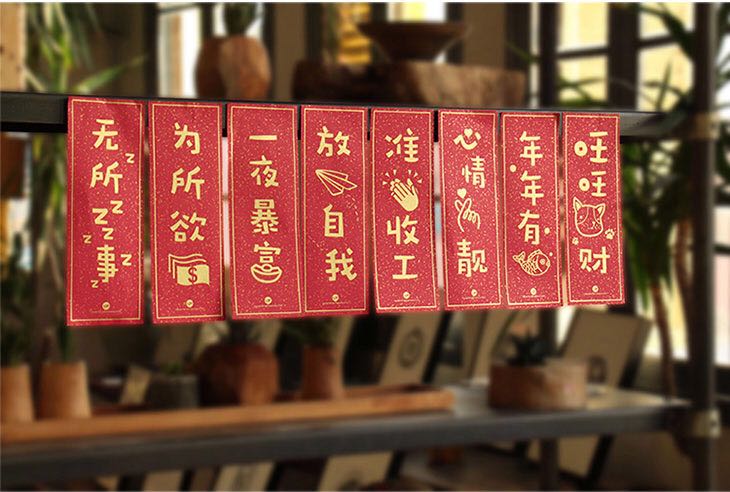 无所ZZ事
为所欲
$
一夜暴富
放自我
准收工
心情靓
年年有
旺旺财